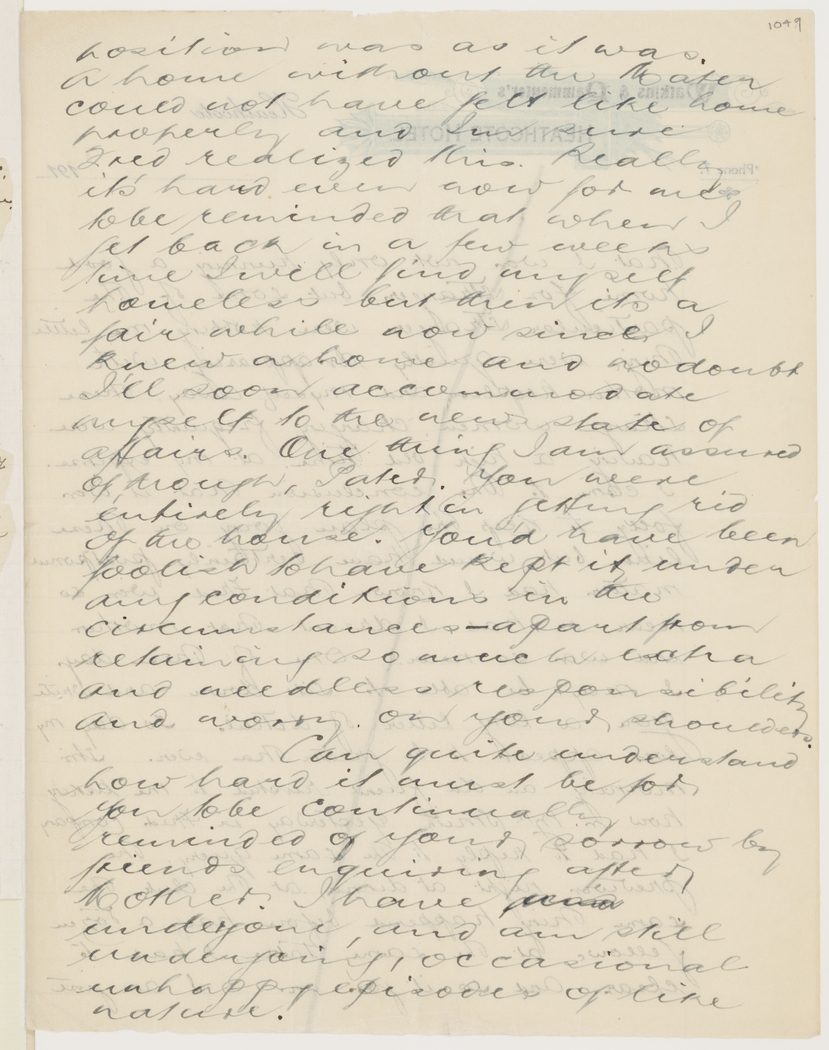 1049
position was as it was.
A home without the Mater
could not have felt like home
properly and I'm sure
Fred realized this. Really
it's hard even now for me
to be reminded that when I
get back in a few weeks
time I will find myself
homeless but then its a
fair while now since I
knew a home and no doubt
I'll soon accommodate
myself to the new state of
affairs. One thing I am assured
of though, Pater. You were
entirely right in getting rid
of the house. You'd have been
foolish to have kept it under
any conditions in the
circumstances—apart from
retaining so much extra
and needless responsibility
and worry on your shoulders.
Can quite understand
how hard it must be for
you to be continually
reminded of your sorrow by
friends enquiring after
Mother. I have
undergone, and am still
undergoing, occasional
unhappy episodes of like
nature.